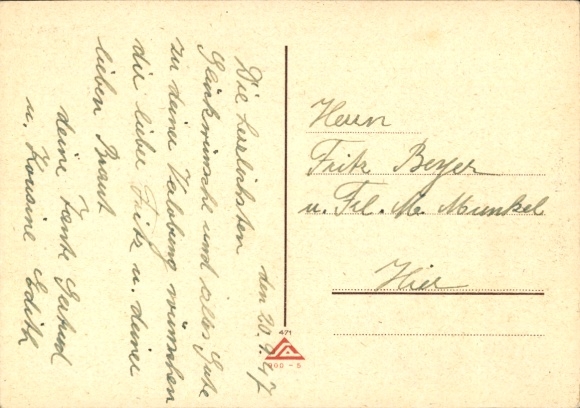 den 20.9.47
Die herzlichsten
Glückwünsche und alles Gute
zu deiner Verlobung wünschen
dir lieber Fritz u. deiner
lieben Braut
deine Tante Gertrud
u. Kousine Edith
Herrn
Fritz Beyer
u. Frl. M. Munkel
Hier
471